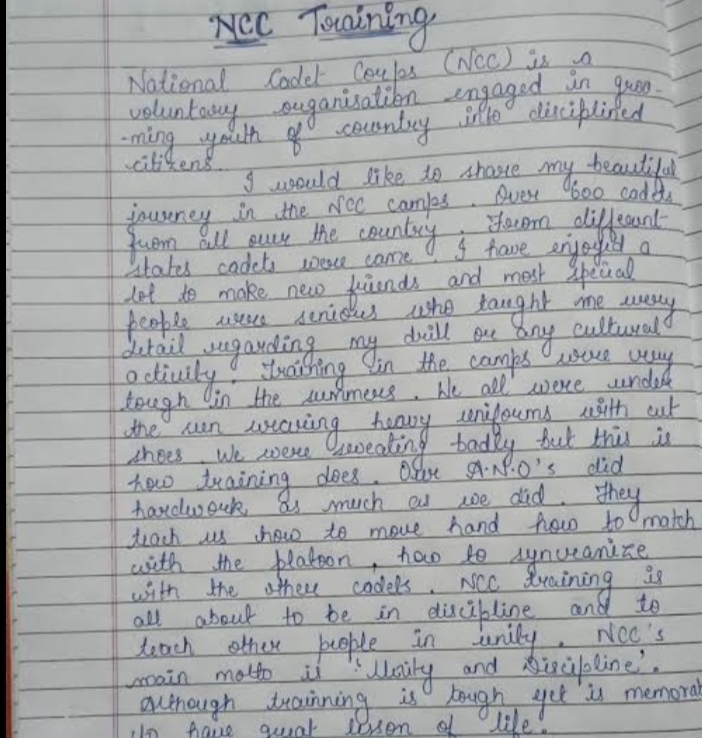 NCC Training
National Cadet Corps (NCC) is a
voluntary organisation engaged in groo-
-ming youth of country into disciplined
citizens.
I would like to share my beautiful
journey in the NCC camps. Over 600 cadets
from all over the country. From different
states cadets were came. I have enjoyed a
lot to make new friends and most special
people were seniors who taught me every
detail regarding my drill or any cultural
activity. Training in the camps were very
tough in the summers. We all were under
the sun wearing heavy uniforms with cut
shoes. We were sweating badly but this is
how training does. Our A.N.O's did
hardwork as much as we did. They
teach us how to move hand how to match
with the platoon, how to syncranize
with the other cadets. NCC training is
all about to be in discipline and to
teach other people in unity. NCC's
main motto is 'Unity and Discipline'.
Although trainning is tough yet is memorab
to have great lesson of life.